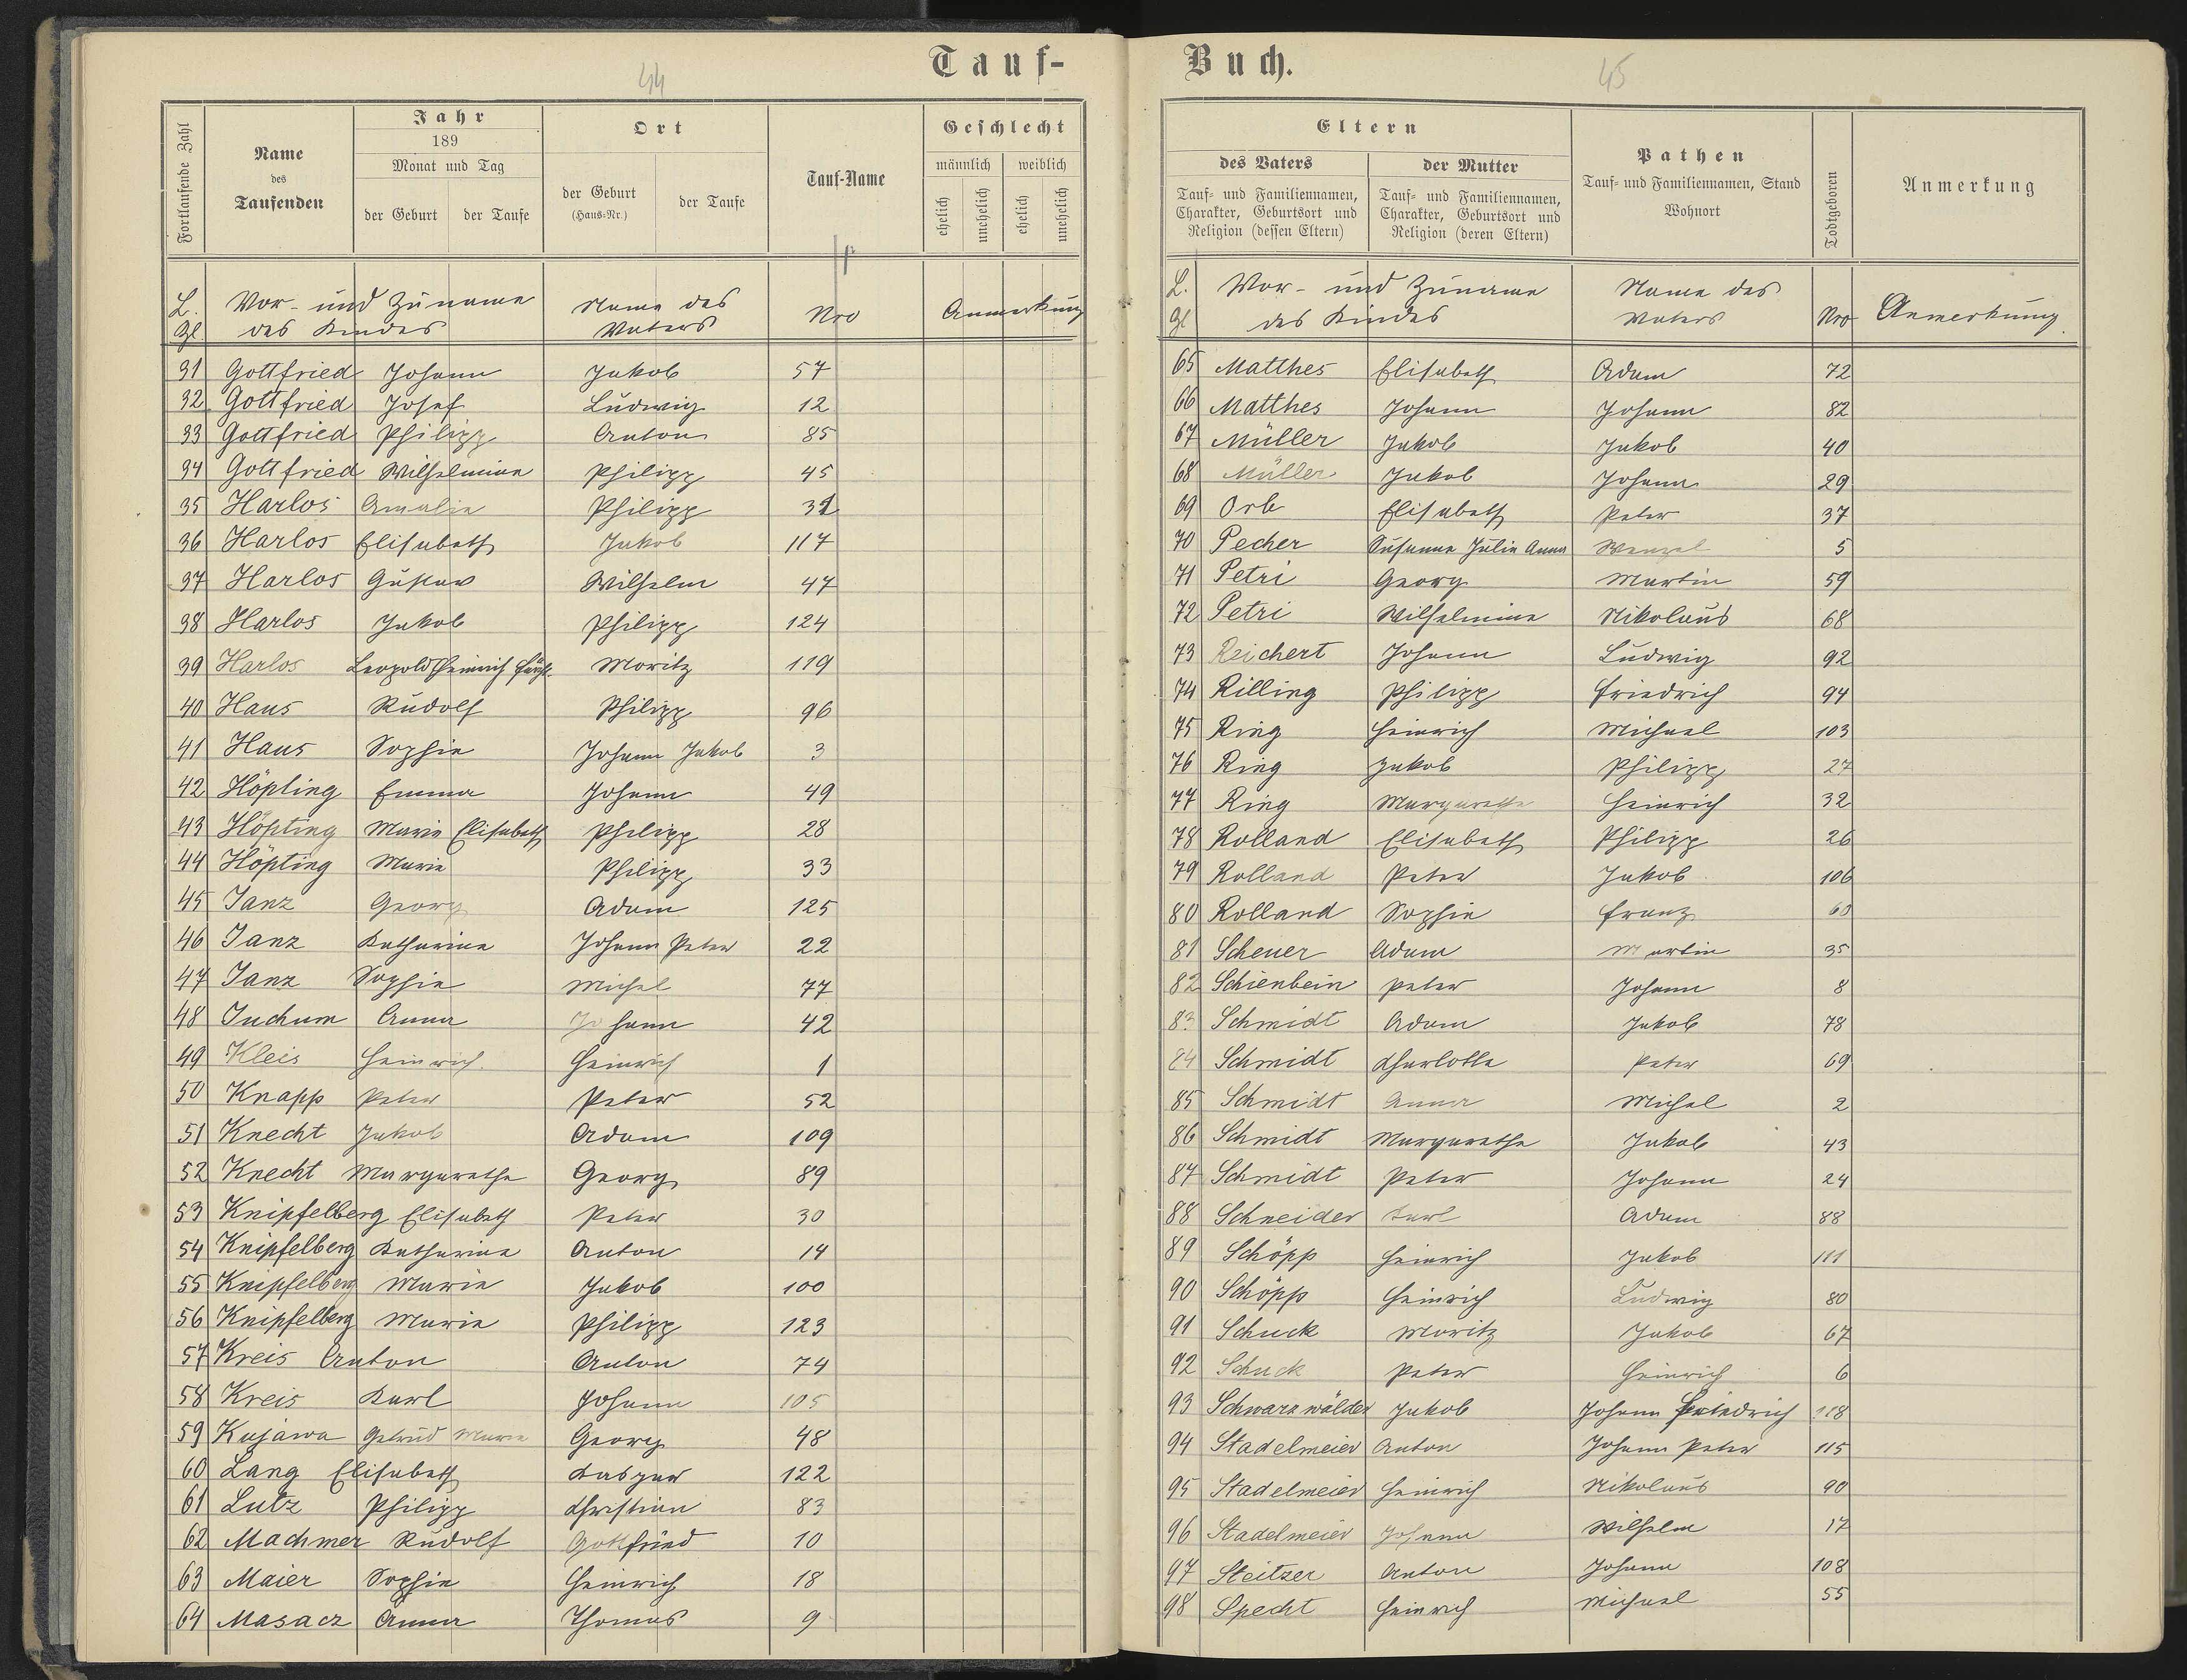 44
Tauf-
Fortlaufende Zahl
Name
des
Taufenden
Jahr
189
Monat und Tag
der Geburt
der Taufe
Ort
der Geburt
(Haus-Nr.)
der Taufe
Tauf-Name
Geschlecht
männlich weiblich
ehelich unehelich ehelich unehelich
L. Vor- und Zuname Name des Nro Anmerkung
Zl. des Kindes Vaters
31 Gottfried Johann Jakob 57
32 Gottfried Josef Ludwig 12
33 Gottfried Philipp Anton 85
34 Gottfried Wilhelmine Philipp 45
35 Harlos Amalie Philipp 31
36 Harlos Elisabeth Jakob 117
37 Harlos Gustav Wilhelm 47
38 Harlos Jakob Philipp 124
39 Harlos Leopold Heinrich Moritz 119
40 Haus Rudolf Philipp 96
41 Haus Sophie Johann Jakob 3
42 Höpling Emma Johann 49
43 Höpting Marie Elisabeth Philipp 28
44 Höpting Marie Philipp 33
45 Janz Georg Adam 125
46 Janz Katharina Johann Peter 22
47 Janz Sophie Michel 77
48 Juchum Anna Johann 42
49 Kleis Heinrich Heinrich 1
50 Knapp Peter Peter 52
51 Knecht Jakob Adam 109
52 Knecht Margarethe Georg 89
53 Knipfelberg Elisabeth Peter 30
54 Knipfelberg Katharina Anton 14
55 Knipfelberg Marie Jakob 100
56 Knipfelberg Marie Philipp 123
57 Kreis Anton Anton 74
58 Kreis Karl Johann 105
59 Kujawa Getrud Marie Georg 48
60 Lang Elisabeth Kaspar 122
61 Lutz Philipp Christian 83
62 Machmer Rudolf Gottfried 10
63 Maier Sophie Heinrich 18
64 Masacz Anna Thomas 9
45
Buch.
Eltern
des Vaters
Tauf- und Familiennamen,
Charakter, Geburtsort und
Religion (dessen Eltern)
der Mutter
Tauf- und Familiennamen,
Charakter, Geburtsort und
Religion (deren Eltern)
Pathen
Tauf- und Familiennamen, Stand
Wohnort
Todtgeboren
Anmerkung
L. Vor- und Zuname Name des
Zl des Kindes Vaters Nro Anmerkung
65 Matthes Elisabeth Adam 72
66 Matthes Johann Johann 82
67 Müller Jakob Jakob 40
68 Müller Jakob Johann 29
69 Orb Elisabeth Peter 37
70 Pecher Susanna Julia Anna Wenzel 5
71 Petri Georg Martin 59
72 Petri Wilhelmine Nikolaus 68
73 Reichert Johann Ludwig 92
74 Rilling Philipp Friedrich 94
75 Ring Heinrich Michael 103
76 Ring Jakob Philipp 27
77 Ring Margarethe Heinrich 32
78 Rolland Elisabeth Philipp 26
79 Rolland Peter Jakob 106
80 Rolland Sophie Franz 60
81 Scheuer Adam Martin 35
82 Schienbein Peter Johann 8
83 Schmidt Adam Jakob 78
84 Schmidt Charlotte Peter 69
85 Schmidt Anna Michel 2
86 Schmidt Margarethe Jakob 43
87 Schmidt Peter Johann 24
88 Schneider Karl Adam 88
89 Schöpp Heinrich Jakob 111
90 Schöpp Heinrich Ludwig 80
91 Schuck Moritz Jakob 67
92 Schuck Peter Heinrich 6
93 Schwarzwälder Jakob Johann Friedrich 118
94 Stadelmeier Anton Johann Peter 115
95 Stadelmeier Heinrich Nikolaus 90
96 Stadelmeier Johann Wilhelm 17
97 Steitzer Anton Johann 108
98 Specht Heinrich Michael 55